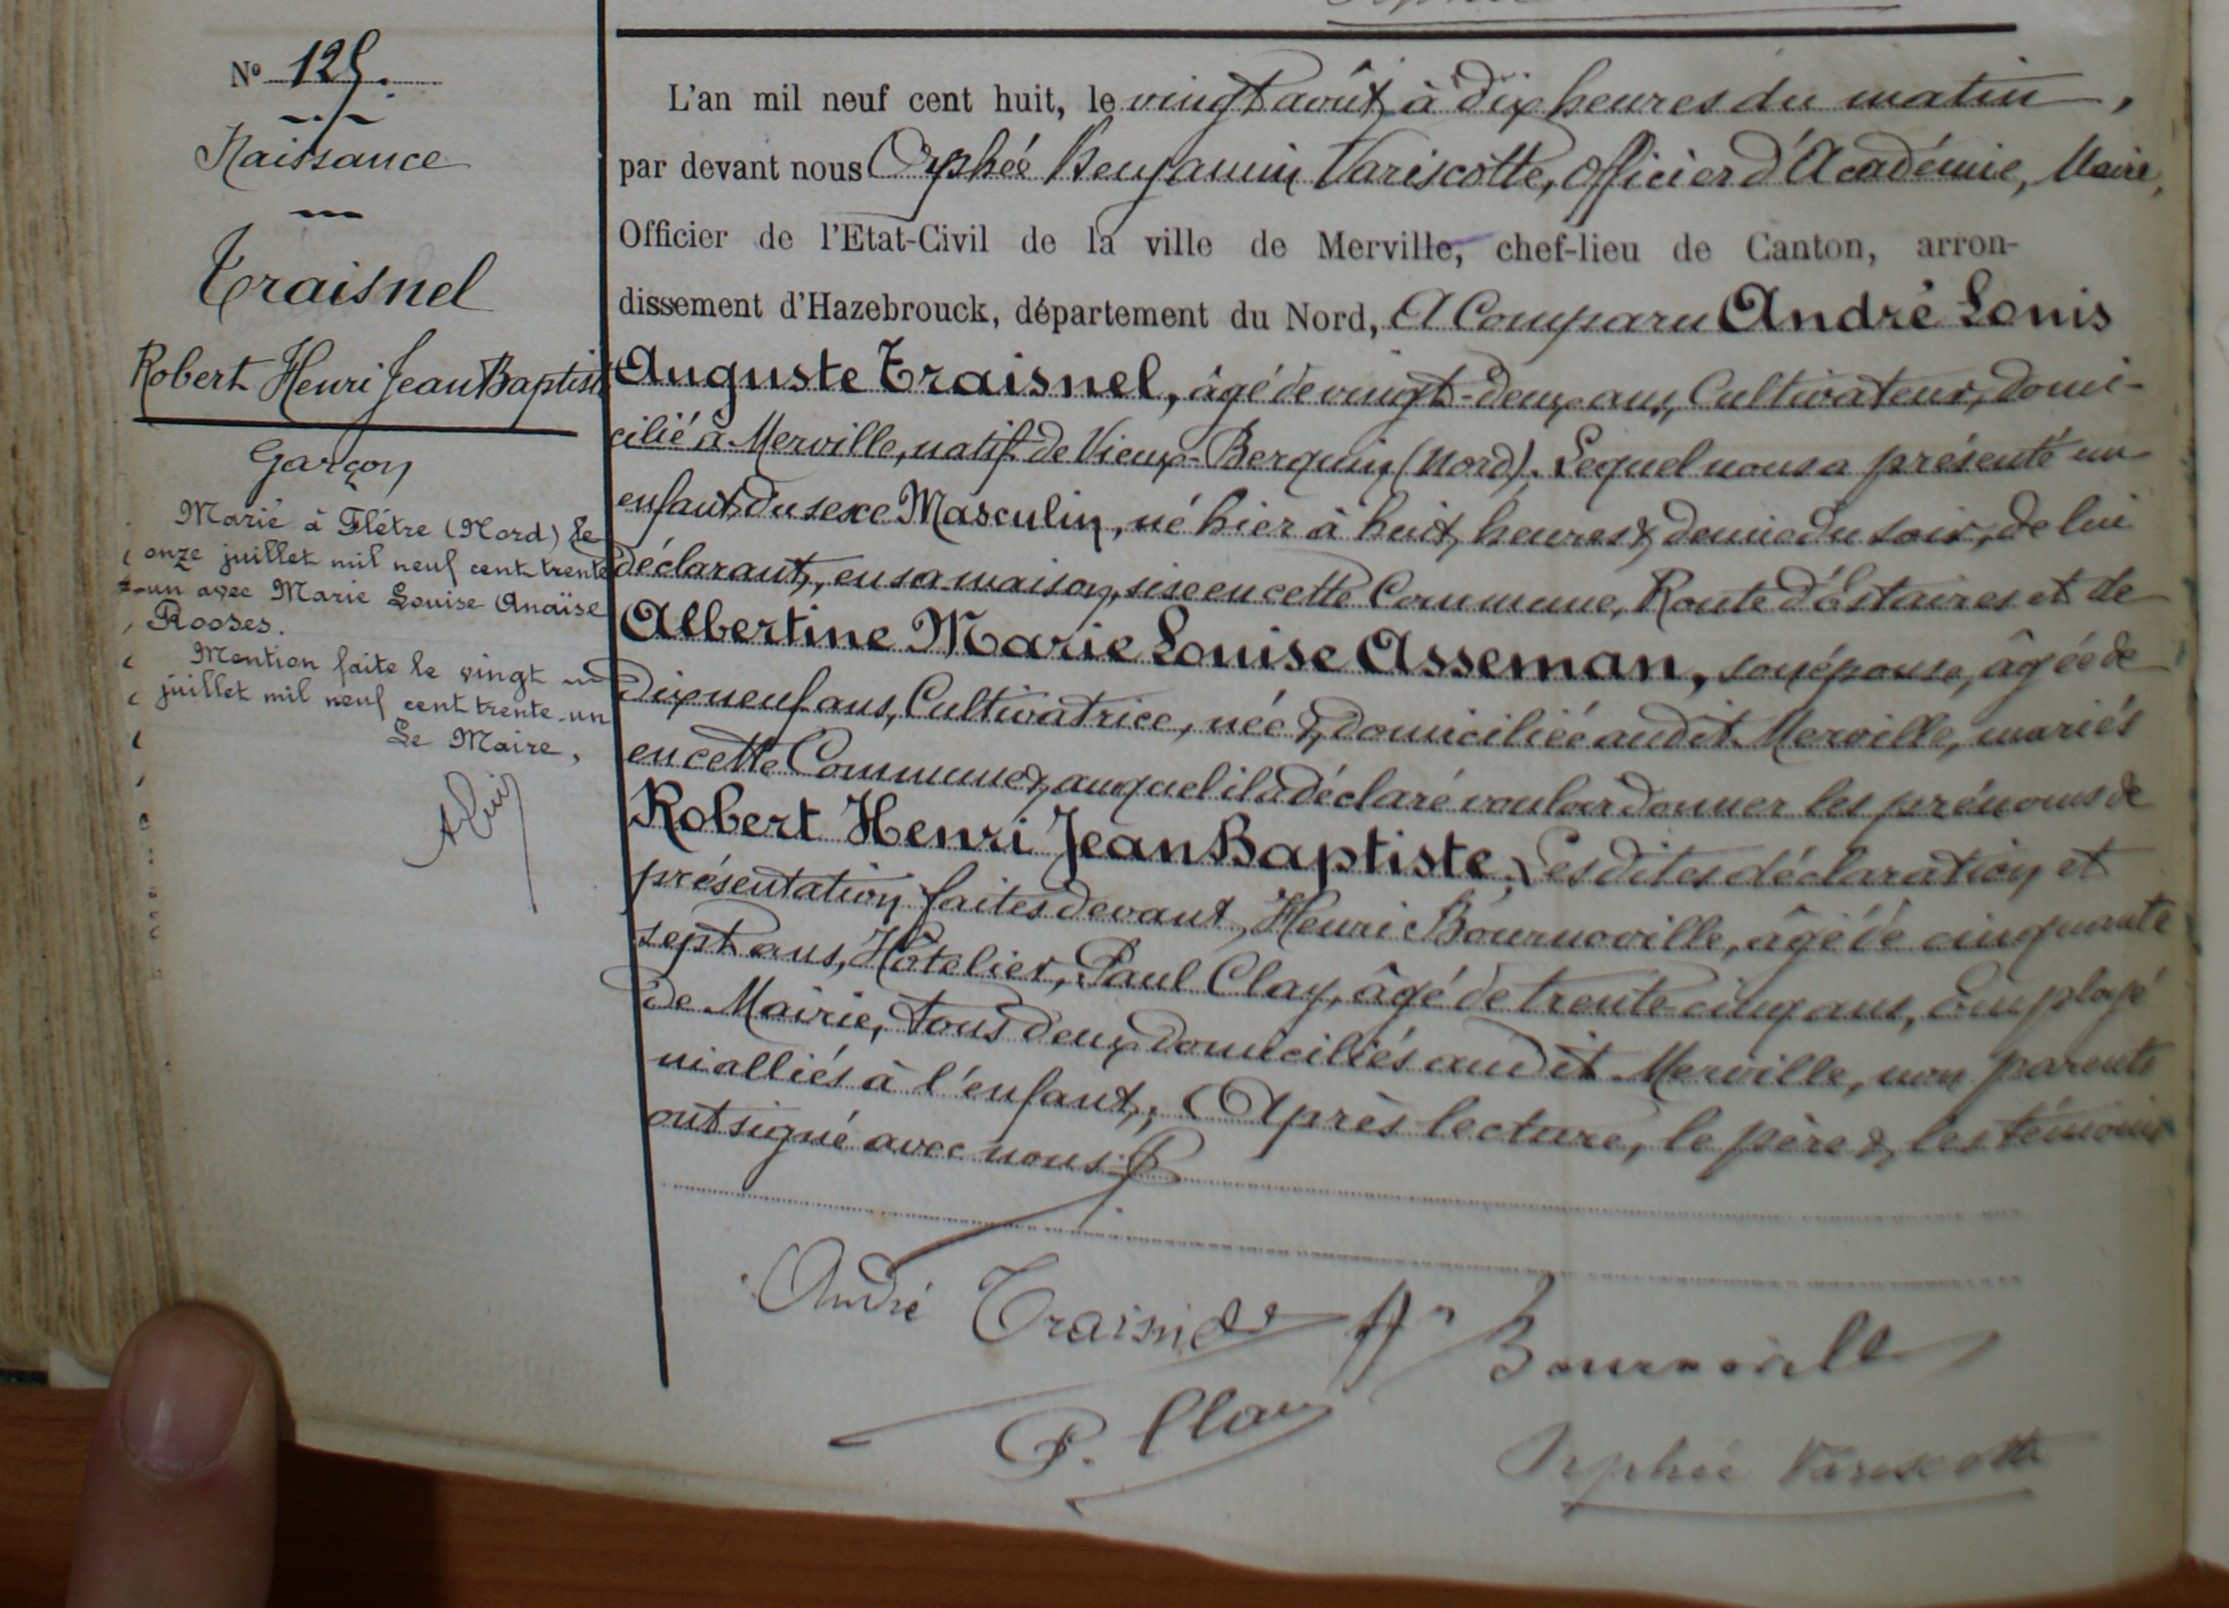 Nº 125.
Naissance
Traisnel
Robert Henri Jean Baptiste
Garçon
Marié à Flêtre (Nord) le
onze juillet mil neuf cent trente
-un avec Marie Louise Anaïse
Rooses.
Mention faite le vingt un
juillet mil neuf cent trente-un
Le Maire,
L'an mil neuf cent huit, le vingt août à dix heures du matin,
par devant nous Orphée Benjamin Variscotte, Officier d'Académie, Maire,
Officier de l'Etat-Civil de la ville de Merville, chef-lieu de Canton, arron-
dissement d'Hazebrouck, département du Nord, A Comparu André Louis
Auguste Traisnel, âgé de vingt-deux ans, Cultivateur, domi-
cilié à Merville, natif de Vieux-Berquin (Nord). Lequel nous a présenté un
enfant du sexe Masculin, né hier à huit heures & demie du soir, de lui
déclarant, en sa maison, sise en cette Commune, Route d'Estaires et de
Albertine Marie Louise Asseman, son épouse, âgée de
dix neuf ans, Cultivatrice, née & domiciliée audit Merville, mariés
en cette Commune & auquel il a déclaré vouloir donner les prénoms de
Robert Henri Jean Baptiste. Lesdites déclaration et
présentation faites devant Henri Bournoville, âgé de cinquante
sept ans, Hôtelier, Paul Clay, âgé de trente cinq ans, Employé
de Mairie, tous deux domiciliés audit Merville, non parents
ni alliés à l'enfant, Après lecture, le père & les témoins
ont signé avec nous.
André Traisnel Hri Bournoville
P. Clay
Orphée Variscotte